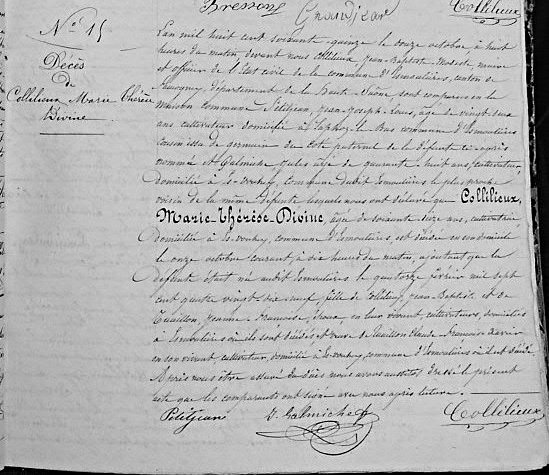 Bresson Grandjean Collilieux
N° 15
Décès
de
Collilieux Marie Thérèse
Divine
L'an mil huit cent soixante quinze le douze octobre, à huit
heures du matin, devant nous Collilieux Jean-Baptiste Modeste maire
et officier de l'état civil de la commune d'Esmoulières, canton de
Faucogney, département de la Haute Saône, sont comparus en la
Maison commune Petitjean, Jean-Joseph-Louis, âgé de vingt deux
ans cultivateur domicilié à commune d'Esmoulières
cousin issu de germain du côté paternel de la défunte ci-après
nommée et Galmiche Jules âgé de quarante huit ans, cultivateur,
domicilié à commune dudit Esmoulières le plus proche
voisin de la même défunte lesquels nous ont déclaré que Collilieux,
Marie-Thérèse-Divine, âgée de soixante seize ans, cultivatrice
domiciliée à commune d'Esmoulières, est décédée en son domicile
le onze octobre courant à dix heures du matin, ajoutant que la
défunte était née audit Esmoulières le quatorze février mil sept
cent quatre vingt dix neuf, fille de Jean-Baptiste, et de
Jeanne Françoise en leur vivant cultivateurs, domiciliés
à Esmoulières où ils sont décédés et veuve de Claude François Xavier
en son vivant cultivateur, domicilié à commune d'Esmoulières où il est décédé
Après nous être assuré du décès nous avons dressé le présent
acte que les comparants ont signé avec nous après lecture.
Petitjean J. Galmiche Collilieux